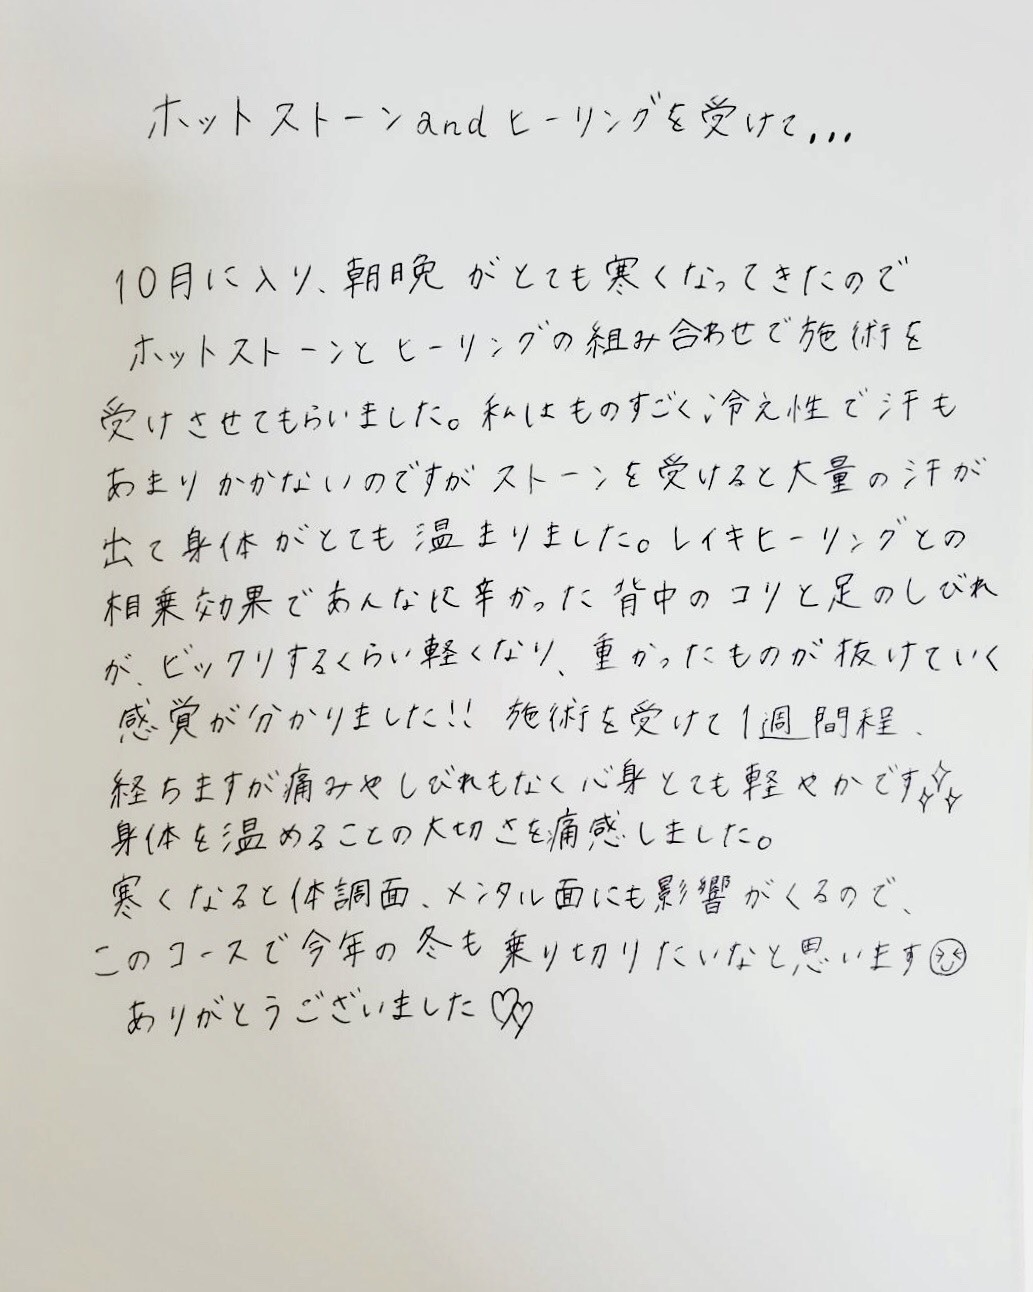 ホットストーンandヒーリングを受けて...
10月に入り、朝晩がとても寒くなってきたので
ホットストーンとヒーリングの組み合わせで施術を
受けさせてもらいました。私はものすごく冷え性で汗も
あまりかかないのですがストーンを受けると大量の汗が
出て身体がとても温まりました。レイキヒーリングとの
相乗効果であんなに辛かった背中のコリと足のしびれ
が、ビックリするくらい軽くなり、重かったものが抜けていく
感覚が分かりました!! 施術を受けて1週間程、
経ちますが痛みやしびれもなく心身とても軽やかです✨
身体を温めることの大切さを痛感しました。
寒くなると体調面、メンタル面にも影響がくるので、
このコースで今年の冬も乗り切りたいなと思います😊
ありがとうございました💕